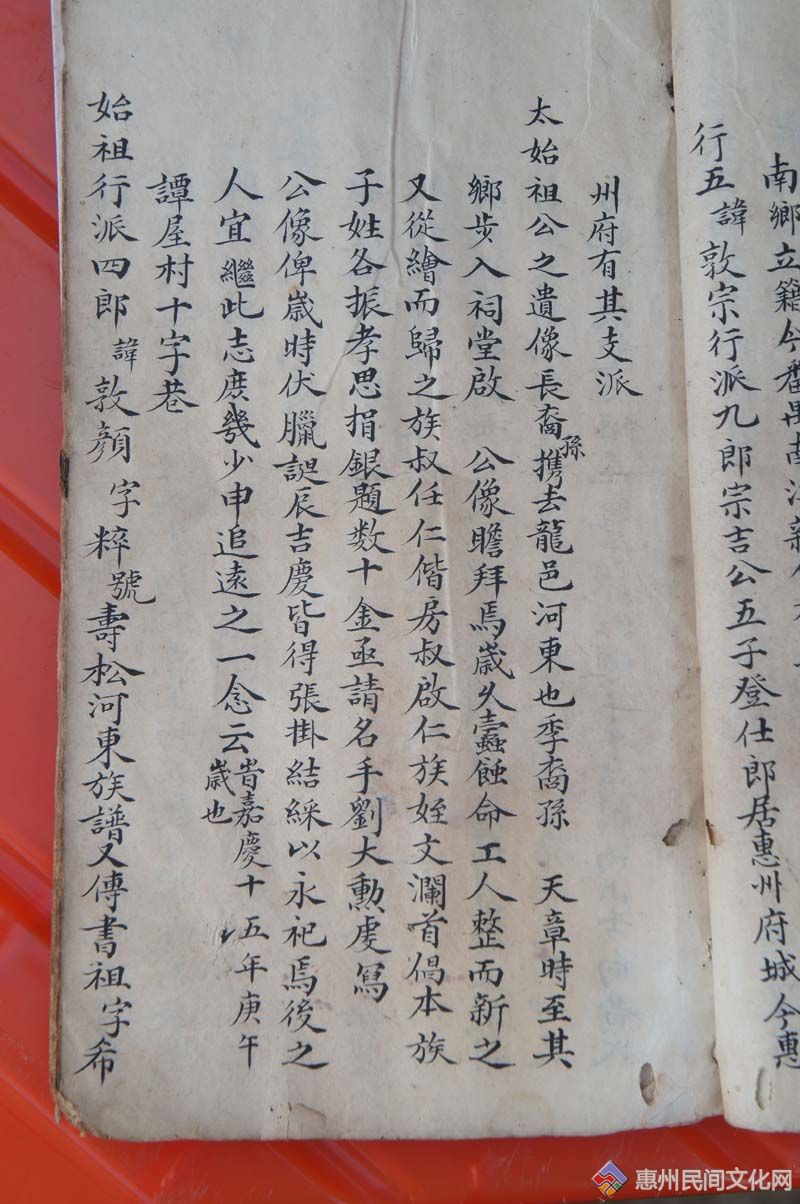 南鄉立籍今番禺
行五諱敦宗行派九郎宗吉公五子登仕郎居惠州府城今惠
州府有其支派
太始祖公之遺像長裔孫攜去龍邑河東也季裔孫 天章時至其
鄉步入祠堂啟 公像瞻拜焉歲久蠹蝕命工人整而新之
又從繪而歸之族叔任仁偕房叔啟仁族姪文瀾首倡本族
子姓各振孝思捐銀題数十金亟請名手劉大勲虔寫
公像俾歲時伏臘誕辰吉慶皆得張掛結綵以永祀焉後之
人宜繼此志庶幾少申追遠之一念云旹嘉慶十五年庚午
歲也
譚屋村十字巷
始祖行派四郎諱敦顏字粹號壽松河東族譜又傳書祖字希
惠州民间文化网